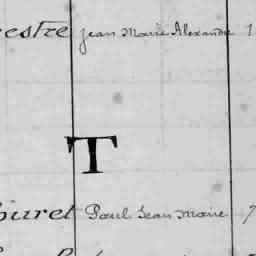 estre Jean Marie Alexandre 1
T
huret Paul Jean Marie 7